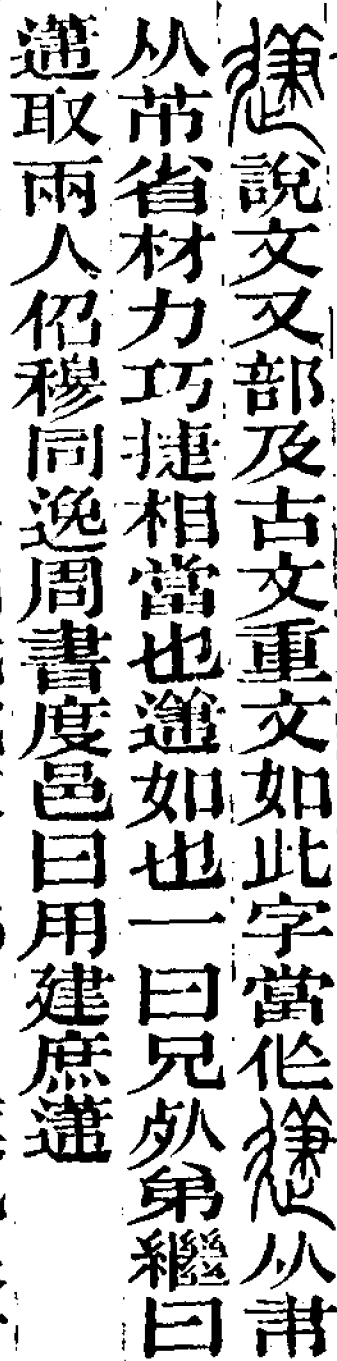 說文又部及古文重文如此字當作从
从芇省材力巧捷相當也如也一曰兄弟繼曰
取兩人佋穆同逸周書度邑曰用建庶